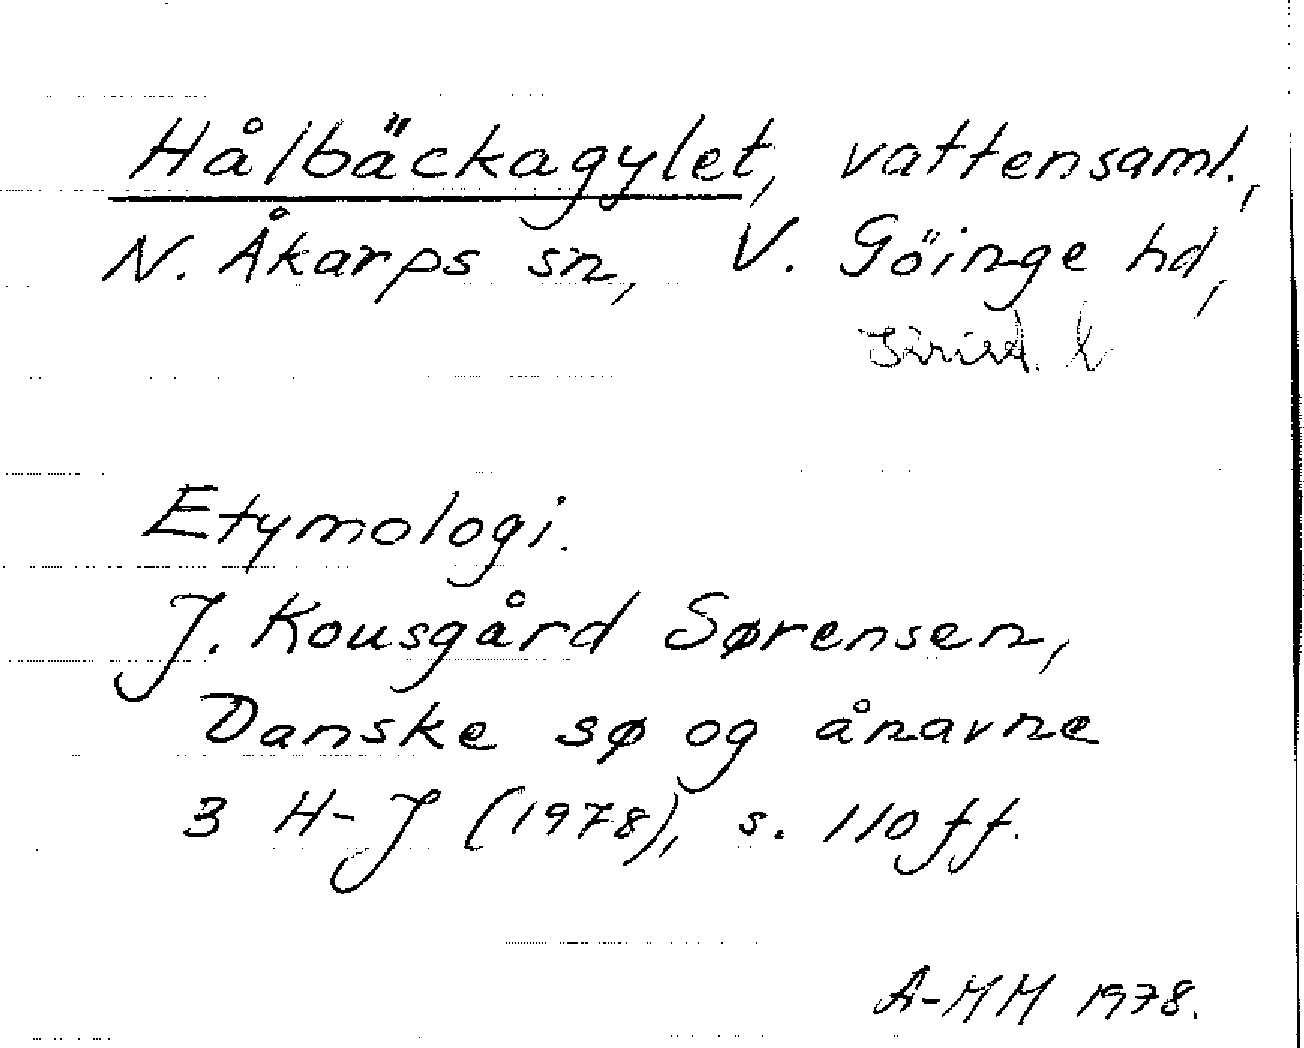 Hålbäckagylet, vattensaml.,
N. Åkarps sn, V. Göinge hd,
Krist. l
Etymologi.
J. Kousgård Sørensen,
Danske sø og ånavne
3 H-J (1978), s. 110 ff.
A-MM 1978.